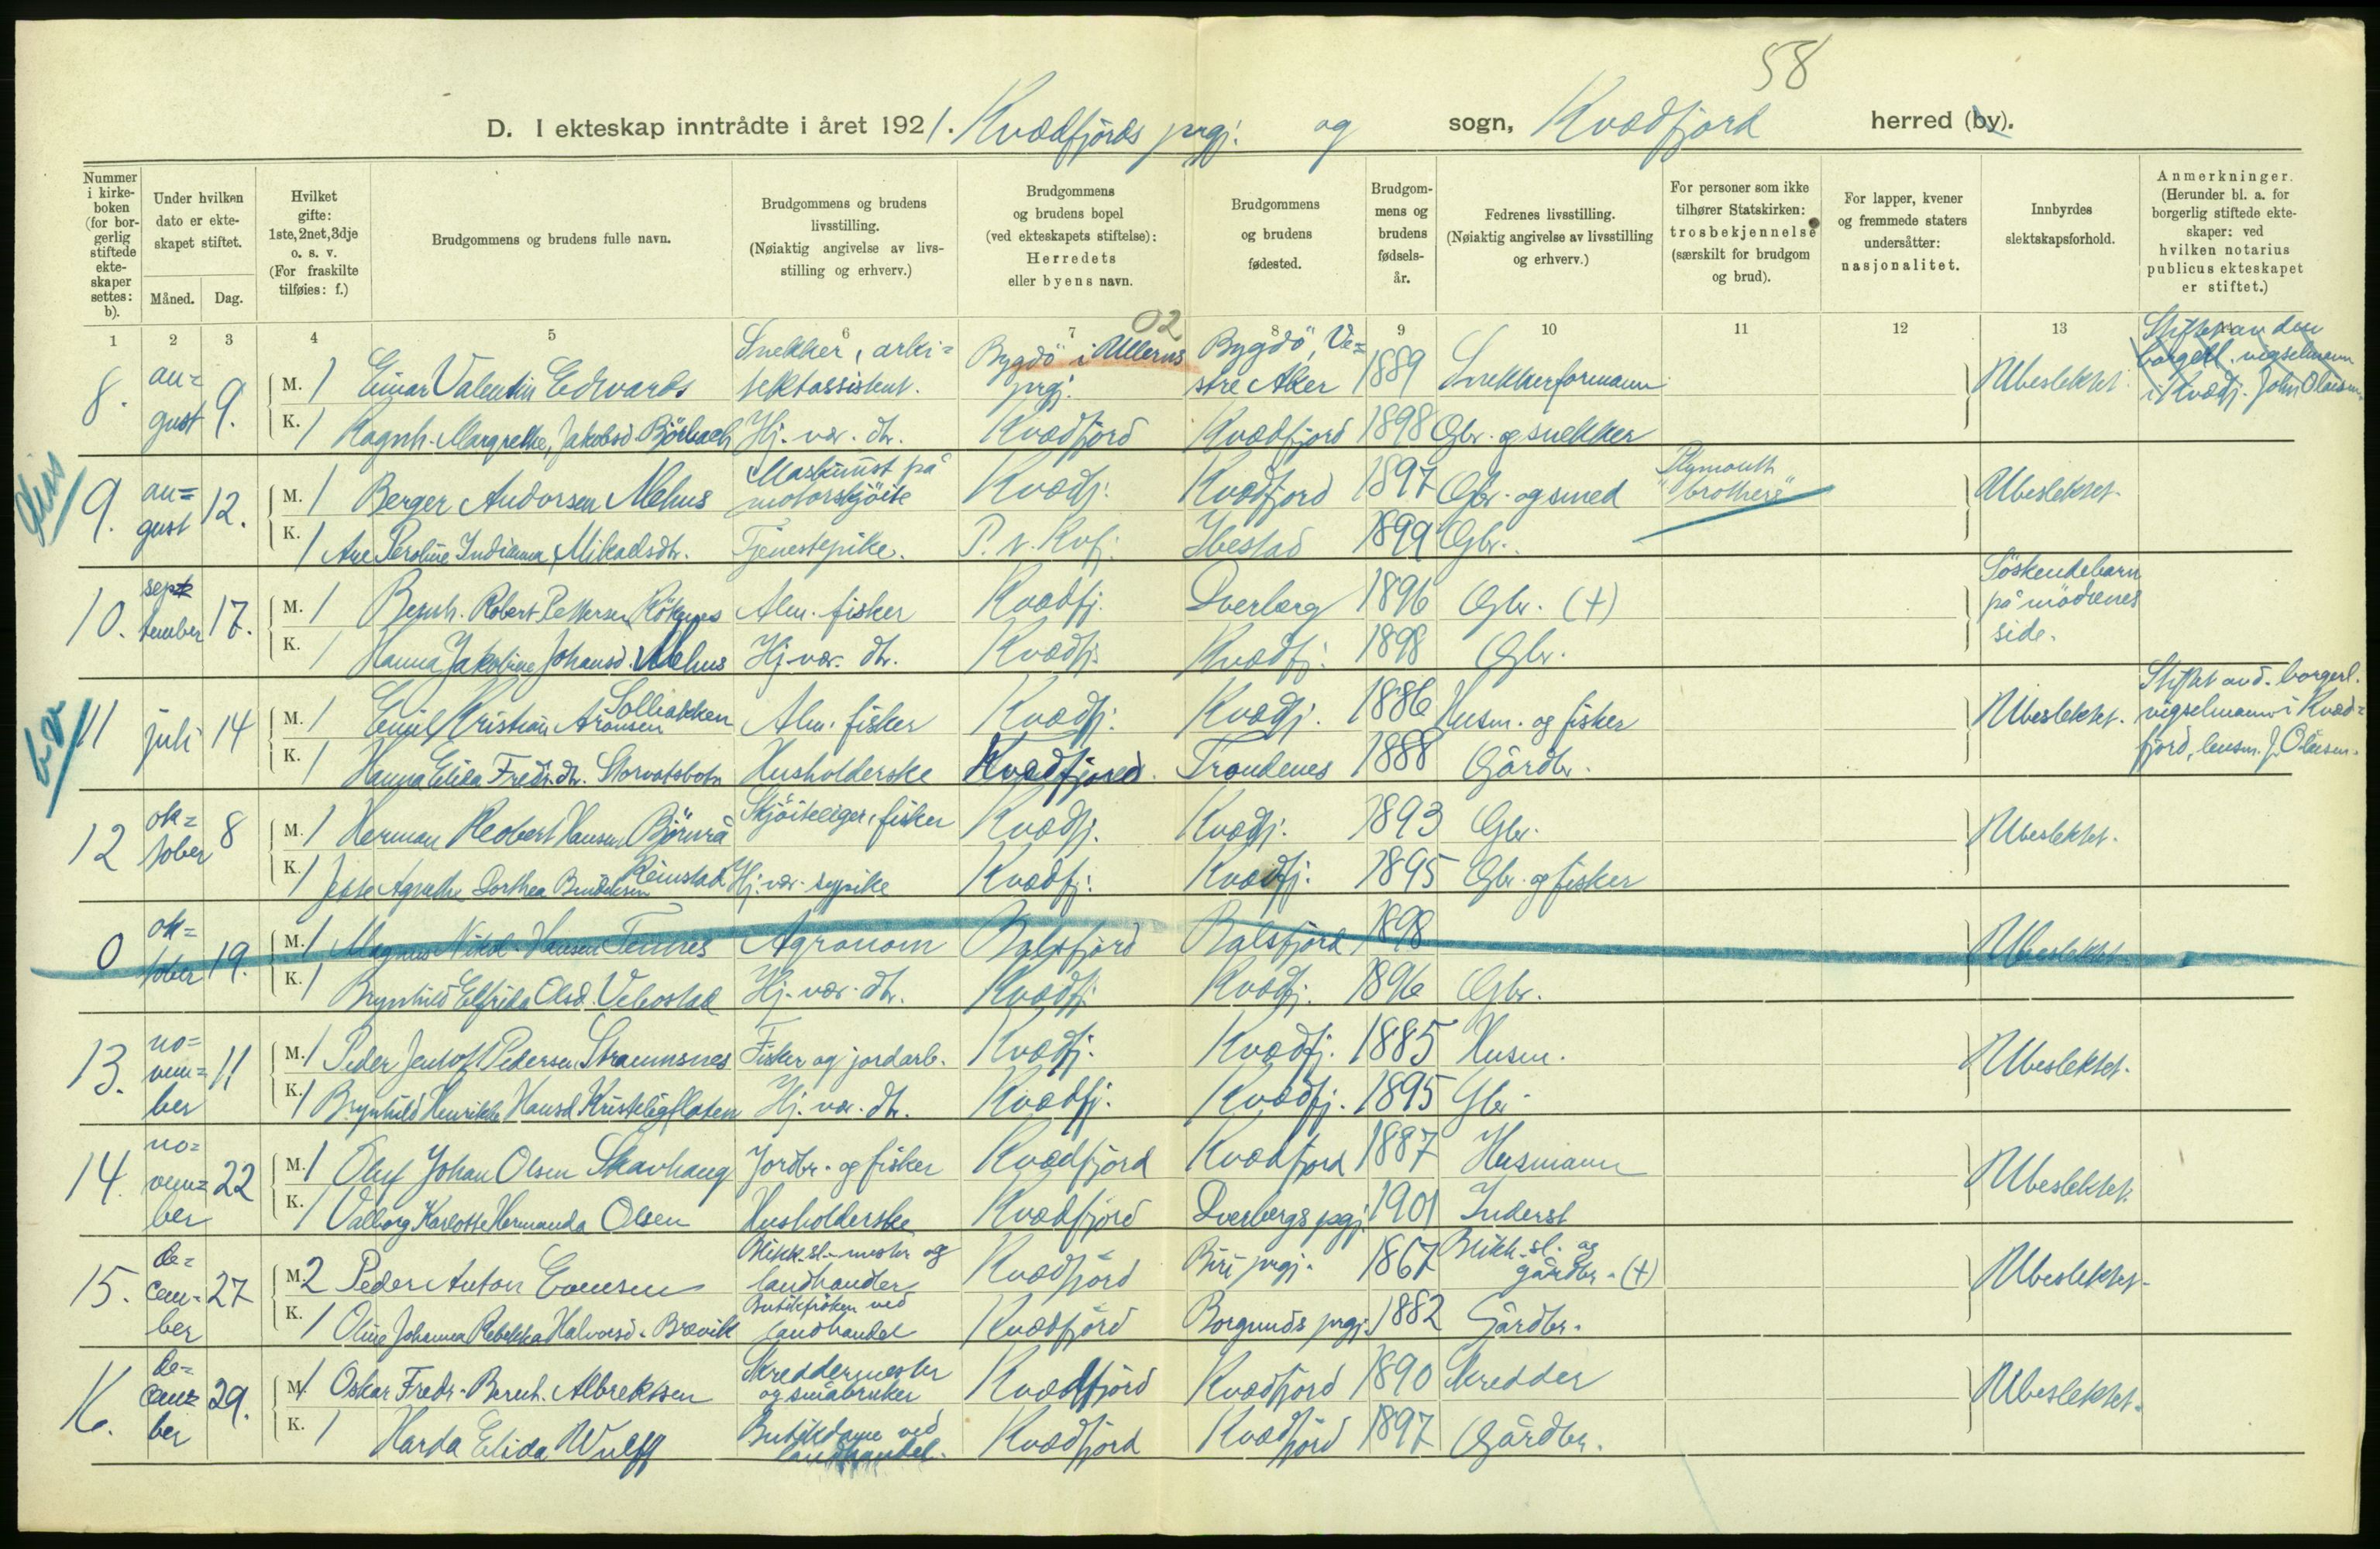 58
D. I ekteskap inntrådte i året 1921. Kvædfjords prgj. og sogn, Kvædfjord herred (by).
Nummer i kirkeboken (for borgerlig stiftede ekteskaper settes: b).
Under hvilken dato er ekteskapet stiftet.
Måned. Dag.
Hvilket gifte: 1ste, 2net, 3dje o. s. v. (For fraskilte tilføies: f.)
Brudgommens og brudens fulle navn.
Brudgommens og brudens livsstilling. (Nøiaktig angivelse av livsstilling og erhverv.)
Brudgommens og brudens bopel (ved ekteskapets stiftelse): Herredets eller byens navn.
Brudgommens og brudens fødested.
Brudgommens og brudens fødselsår.
Fedrenes livsstilling. (Nøiaktig angivelse av livsstilling og erhverv.)
For personer som ikke tilhører Statskirken: trosbekjennelse (særskilt for brudgom og brud).
For lapper, kvener og fremmede staters undersåtter: nasjonalitet.
Innbyrdes slektskapsforhold.
Anmerkninger. (Herunder bl. a. for borgerlig stiftede ekteskaper: ved hvilken notarius publicus ekteskapet er stiftet.)
1 2 3 4 5 6 7 8 9 10 11 12 13
02
8. august 9. M. 1 Einar Valentin Edvards Snekker, arkitektassistent. Bygdö i Ullerns prgj. Bygdö, Vestre Aker 1889 Snekkerformann Ubeslektet. Stiftet av den borgerl. vigselmann i Kvædfj. John Olaisen
K. 1 Ragnh. Margrethe, Jakobsd. Hj. vær. dtr. Kvædfjord Kvædfjord 1898 Gbr. og snekker
9. august 12. M. 1 Berger Andorsen Mehus Maskinist på motorskjöite Kvædfj. Kvædfjord 1897 Gbr. og smed "Plymouth brothers" Ubeslektet.
K. 1 Ane Peroline Indianna Mikaelsdtr. Tjenestepike. P. t. Kvfj. Ibestad 1899 Gbr.
10. september 17. M. 1 Bernh. Robert Pettersen Alm. fisker Kvædfj. Dverberg 1896 Gbr. (+) Söskendebarn på mödrenes side.
K. 1 Hanna Jakobine Johansd. Mehus Hj. vær. dtr. Kvædfj. Kvædfj. 1898 Gbr.
11 juli 14 M. 1 Emil Kristian Aronsen Solbakken Alm. fisker Kvædfj. Kvædfj. 1886 Husm. og fisker Ubeslektet. Stiftet av d. borgerl. vigselmann i Kvædfjord, lensm. J. Olaisen.
K. 1 Hanna Elida Fredr. dtr. Storvatsbotn Husholderske Kvædfjord. Trondenes 1888 Gårdbr.
12 oktober 8 M. 1 Herman Robert Hansen Björnrå Skjöiteeiger, fisker Kvædfj. Kvædfj. 1893 Gbr. Ubeslektet.
K. 1 Agnethe Dorthea Reinstad Hj. vær. sypike Kvædfj. Kvædfj. 1895 Gbr. og fisker
0 oktober 19. M. 1 Magnus Nikol. Hansen Tennes Agronom Balsfjord Balsfjord 1898 Ubeslektet.
K. 1 Brynhild Elfrida Olsd. Vebostad Hj. vær. dtr. Kvædfj. Kvædfj. 1896 Gbr.
13. november 11 M. 1 Peder Jentoft Pedersen Straumsnes Fisker og jordarb. Kvædfj. Kvædfj. 1885 Husm. Ubeslektet.
K. 1 Brynhild Henrikke Hansd. Hj. vær. dtr. Kvædfj. Kvædfj. 1895 Gbr.
14. november 22 M. 1 Oluf Johan Olsen Skavhaug Jordbr. og fisker Kvædfjord Kvædfjord 1887 Husmann Ubeslektet.
K. 1 Valborg Karlotte Hermanda Olsen Husholderske Kvædfjord Dverbergs pgj. 1901 Inderst
15. december 27 M. 2 Peder Anton Evensen Blikk.sl.mester og landhandler Kvædfjord Biri prgj. 1867 Blikk.sl. og gårdbr. (+) Ubeslektet.
K. 1 Oline Johanna Rebekka Halvorsd. Brevik Butikfröken ved landhandel Kvædfjord Borgunds prgj. 1882 Gårdbr.
16. december 29. M. 1 Oskar Fredr. Bernh. Albrektsen Skreddermester og småbruker Kvædfjord Kvædfjord 1890 Skredder Ubeslektet.
K. 1 Harda Elida Wulff Butikdame ved landhandel. Kvædfjord Kvædfjord 1897 Gårdbr.